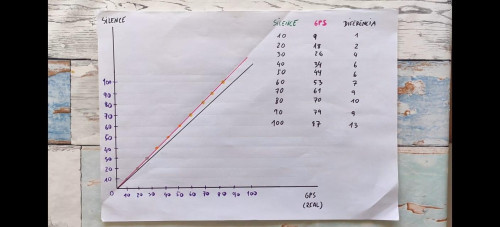 SILENCE
SILENCE GPS DIFERÈNCIA
10 9 1
20 18 2
30 26 4
40 34 6
50 44 6
60 53 7
70 61 9
80 70 10
90 79 9
100 87 13
100
90
80
70
60
50
40
30
20
10
0 10 20 30 40 50 60 70 80 90 100
GPS
(REAL)